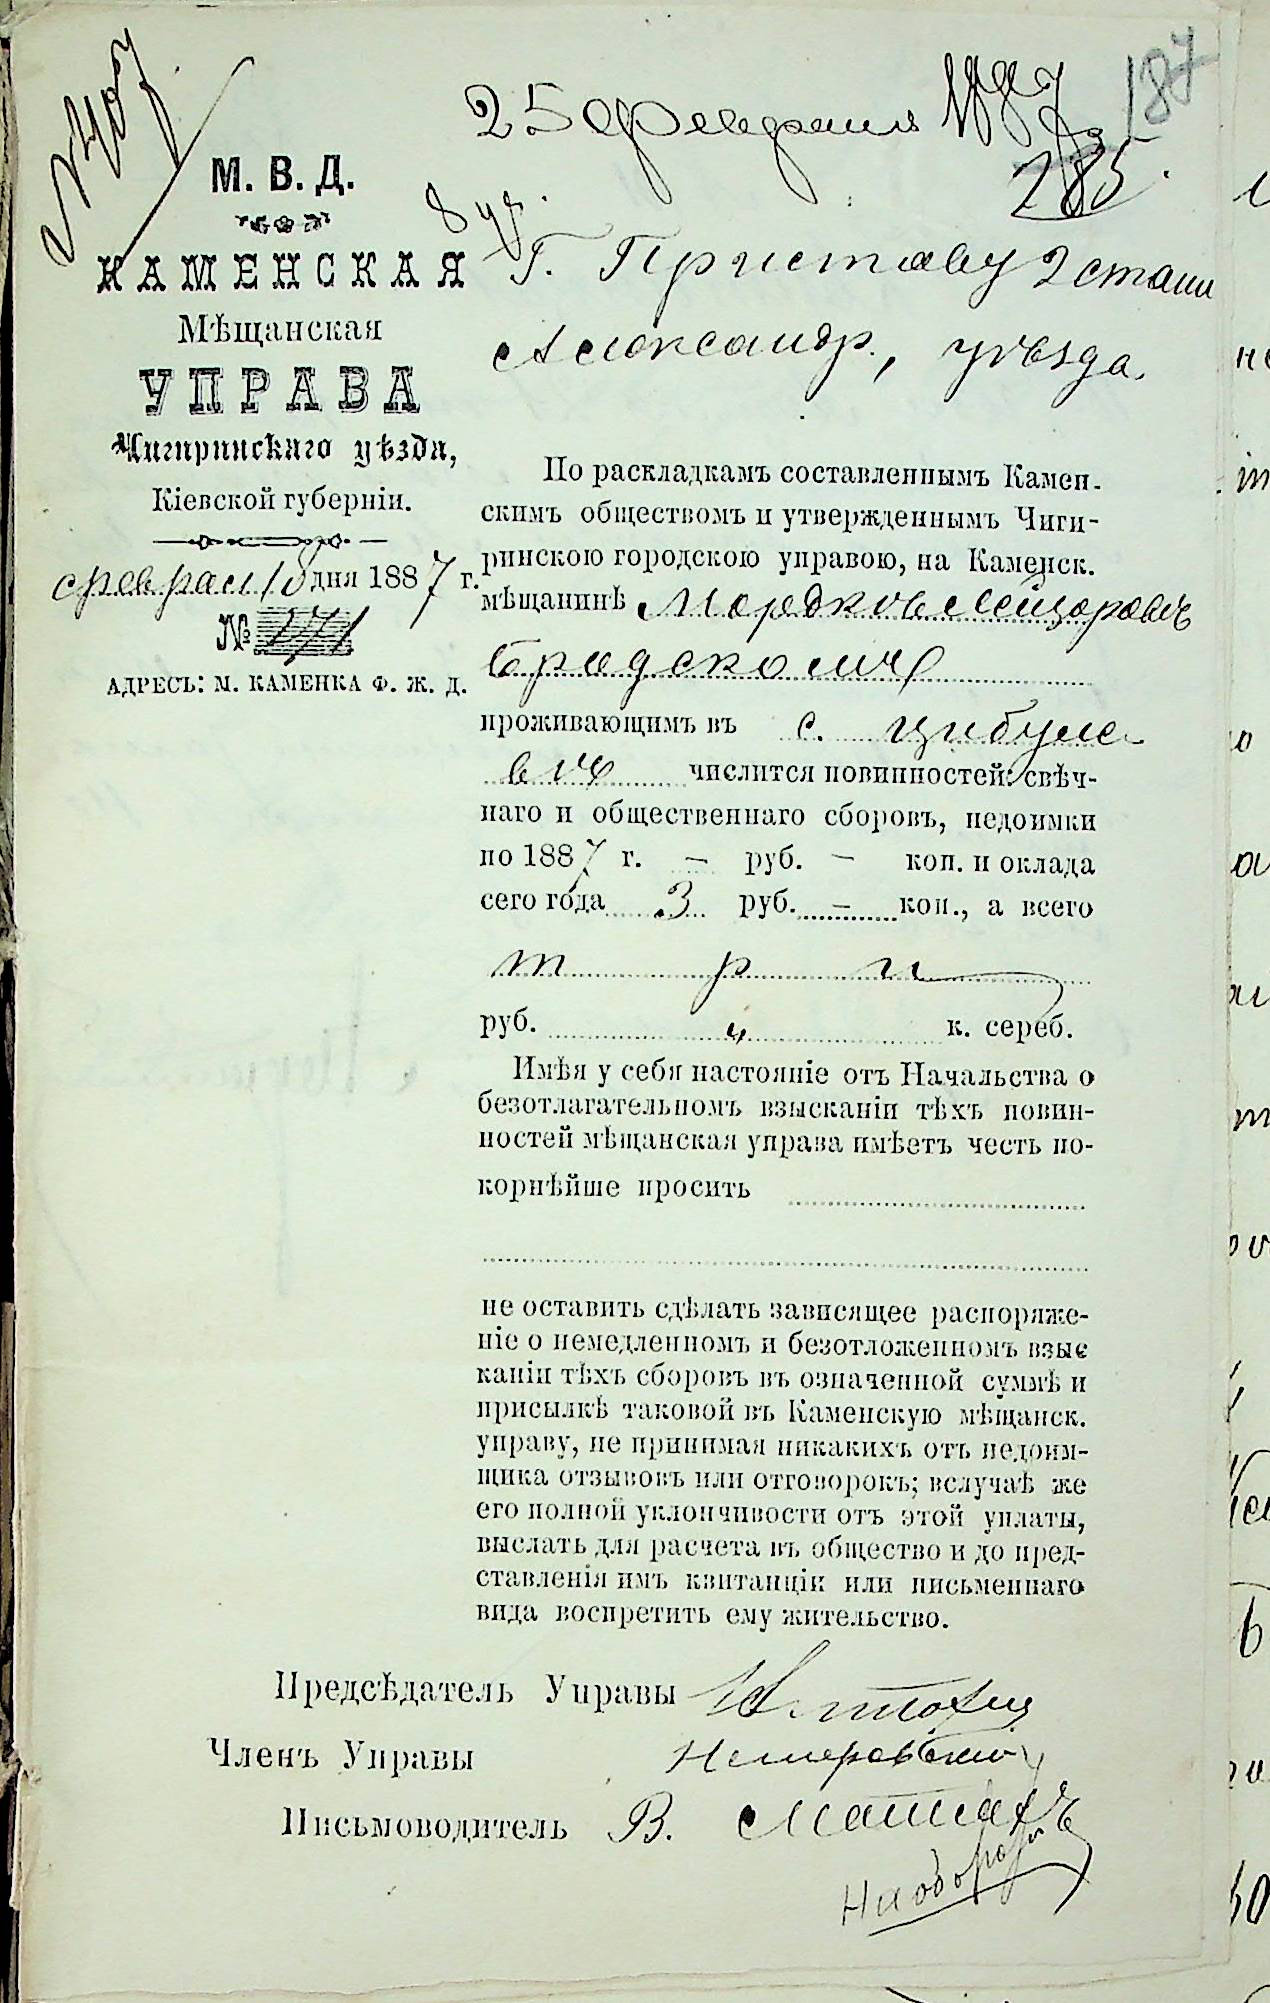 187
25 февраля 1887
285.
М. В. Д.
КАМЕНСКАЯ
Мѣщанская
УПРАВА
Чигиринскаго уѣзда,
Кіевской губерніи.
феврал 18 дня 1887 г.
№ 271
АДРЕСЪ: М. КАМЕНКА Ф. Ж. Д.
Г. Приставу 2 стана
Александр., уѣзда.
По раскладкамъ составленнымъ Камен-
скимъ обществомъ и утвержденнымъ Чиги-
ринскою городскою управою, на Каменск.
мѣщанинѣ Мордковѣ
Бродскомъ
проживающимъ въ с. Цибуле
вѣ числится повинностей: свѣч-
наго и общественнаго сборовъ, недоимки
по 1887 г. — руб. — коп. и оклада
сего года 3 руб. — коп., а всего
три
руб. и к. сереб.
Имѣя у себя настояніе отъ Начальства о
безотлагательномъ взысканіи тѣхъ повин-
ностей мѣщанская управа имѣетъ честь по-
корнѣйше просить
не оставить сдѣлать зависящее распоряже-
ніе о немедленномъ и безотложенномъ взыс
каніи тѣхъ сборовъ въ означенной суммѣ и
присылкѣ таковой въ Каменскую мѣщанск.
управу, не принимая никакихъ отъ недоим-
щика отзывовъ или отговорокъ; вслучаѣ же
его полной уклончивости отъ этой уплаты,
выслать для расчета въ общество и до пред-
ставленія имъ квитанціи или письменнаго
вида воспретить ему жительство.
Предсѣдатель Управы
Членъ Управы
Письмоводитель В.
На обороте